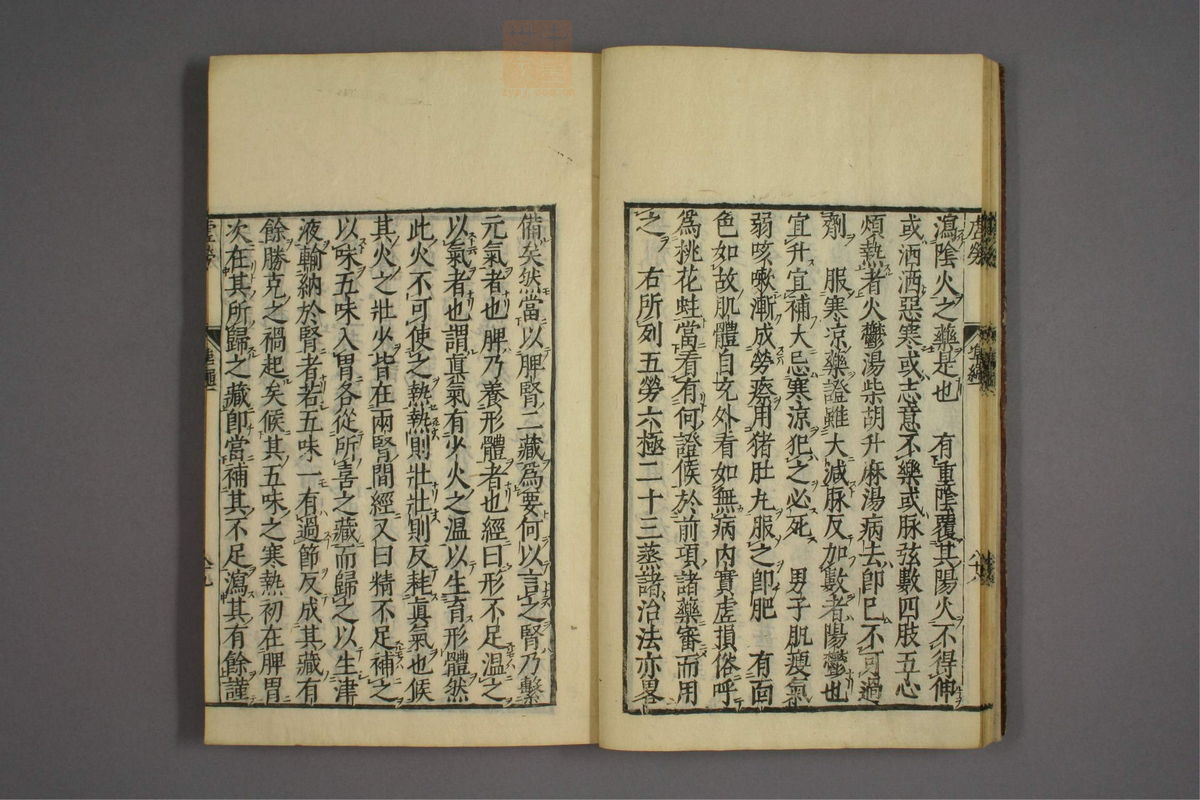 瀉陰火之藥是也　有重陰覆其陽火不得伸
或洒洒惡寒或志意不樂或脉弦數四肢五心
煩熱者火鬱湯柴胡升麻湯病去卽已不可過
劑　服寒凉藥證雖大減脉反加數者陽鬱也
宜升宜補大忌寒凉犯之必死　男子肌瘦氣
弱咳嗽漸成勞瘵用猪肚丸服之卽肥　有面
色如故肌體自充外看如無病內實虛損俗呼
爲桃花蛀當看有何證候於前項諸藥審而用
之　右所列五勞六極二十三蒸諸治法亦畧
備矣然當以脾腎二藏爲要何以言之腎乃繫
元氣者也脾乃養形體者也經曰形不足溫之
以氣氣者也謂眞氣有少火之溫以生育形體然
此火不可使之熱熱則壯壯則反耗眞氣也候
其火之壯少皆在兩腎間經又曰精不足補之
以味五味入胃各從所喜之藏而歸之以生津
液輸納於腎者若五味一有過節反成其藏有
餘勝克之禍起矣候其五味之寒熱初在脾胃
次在其所歸之藏卽當補其不足瀉其有餘謹